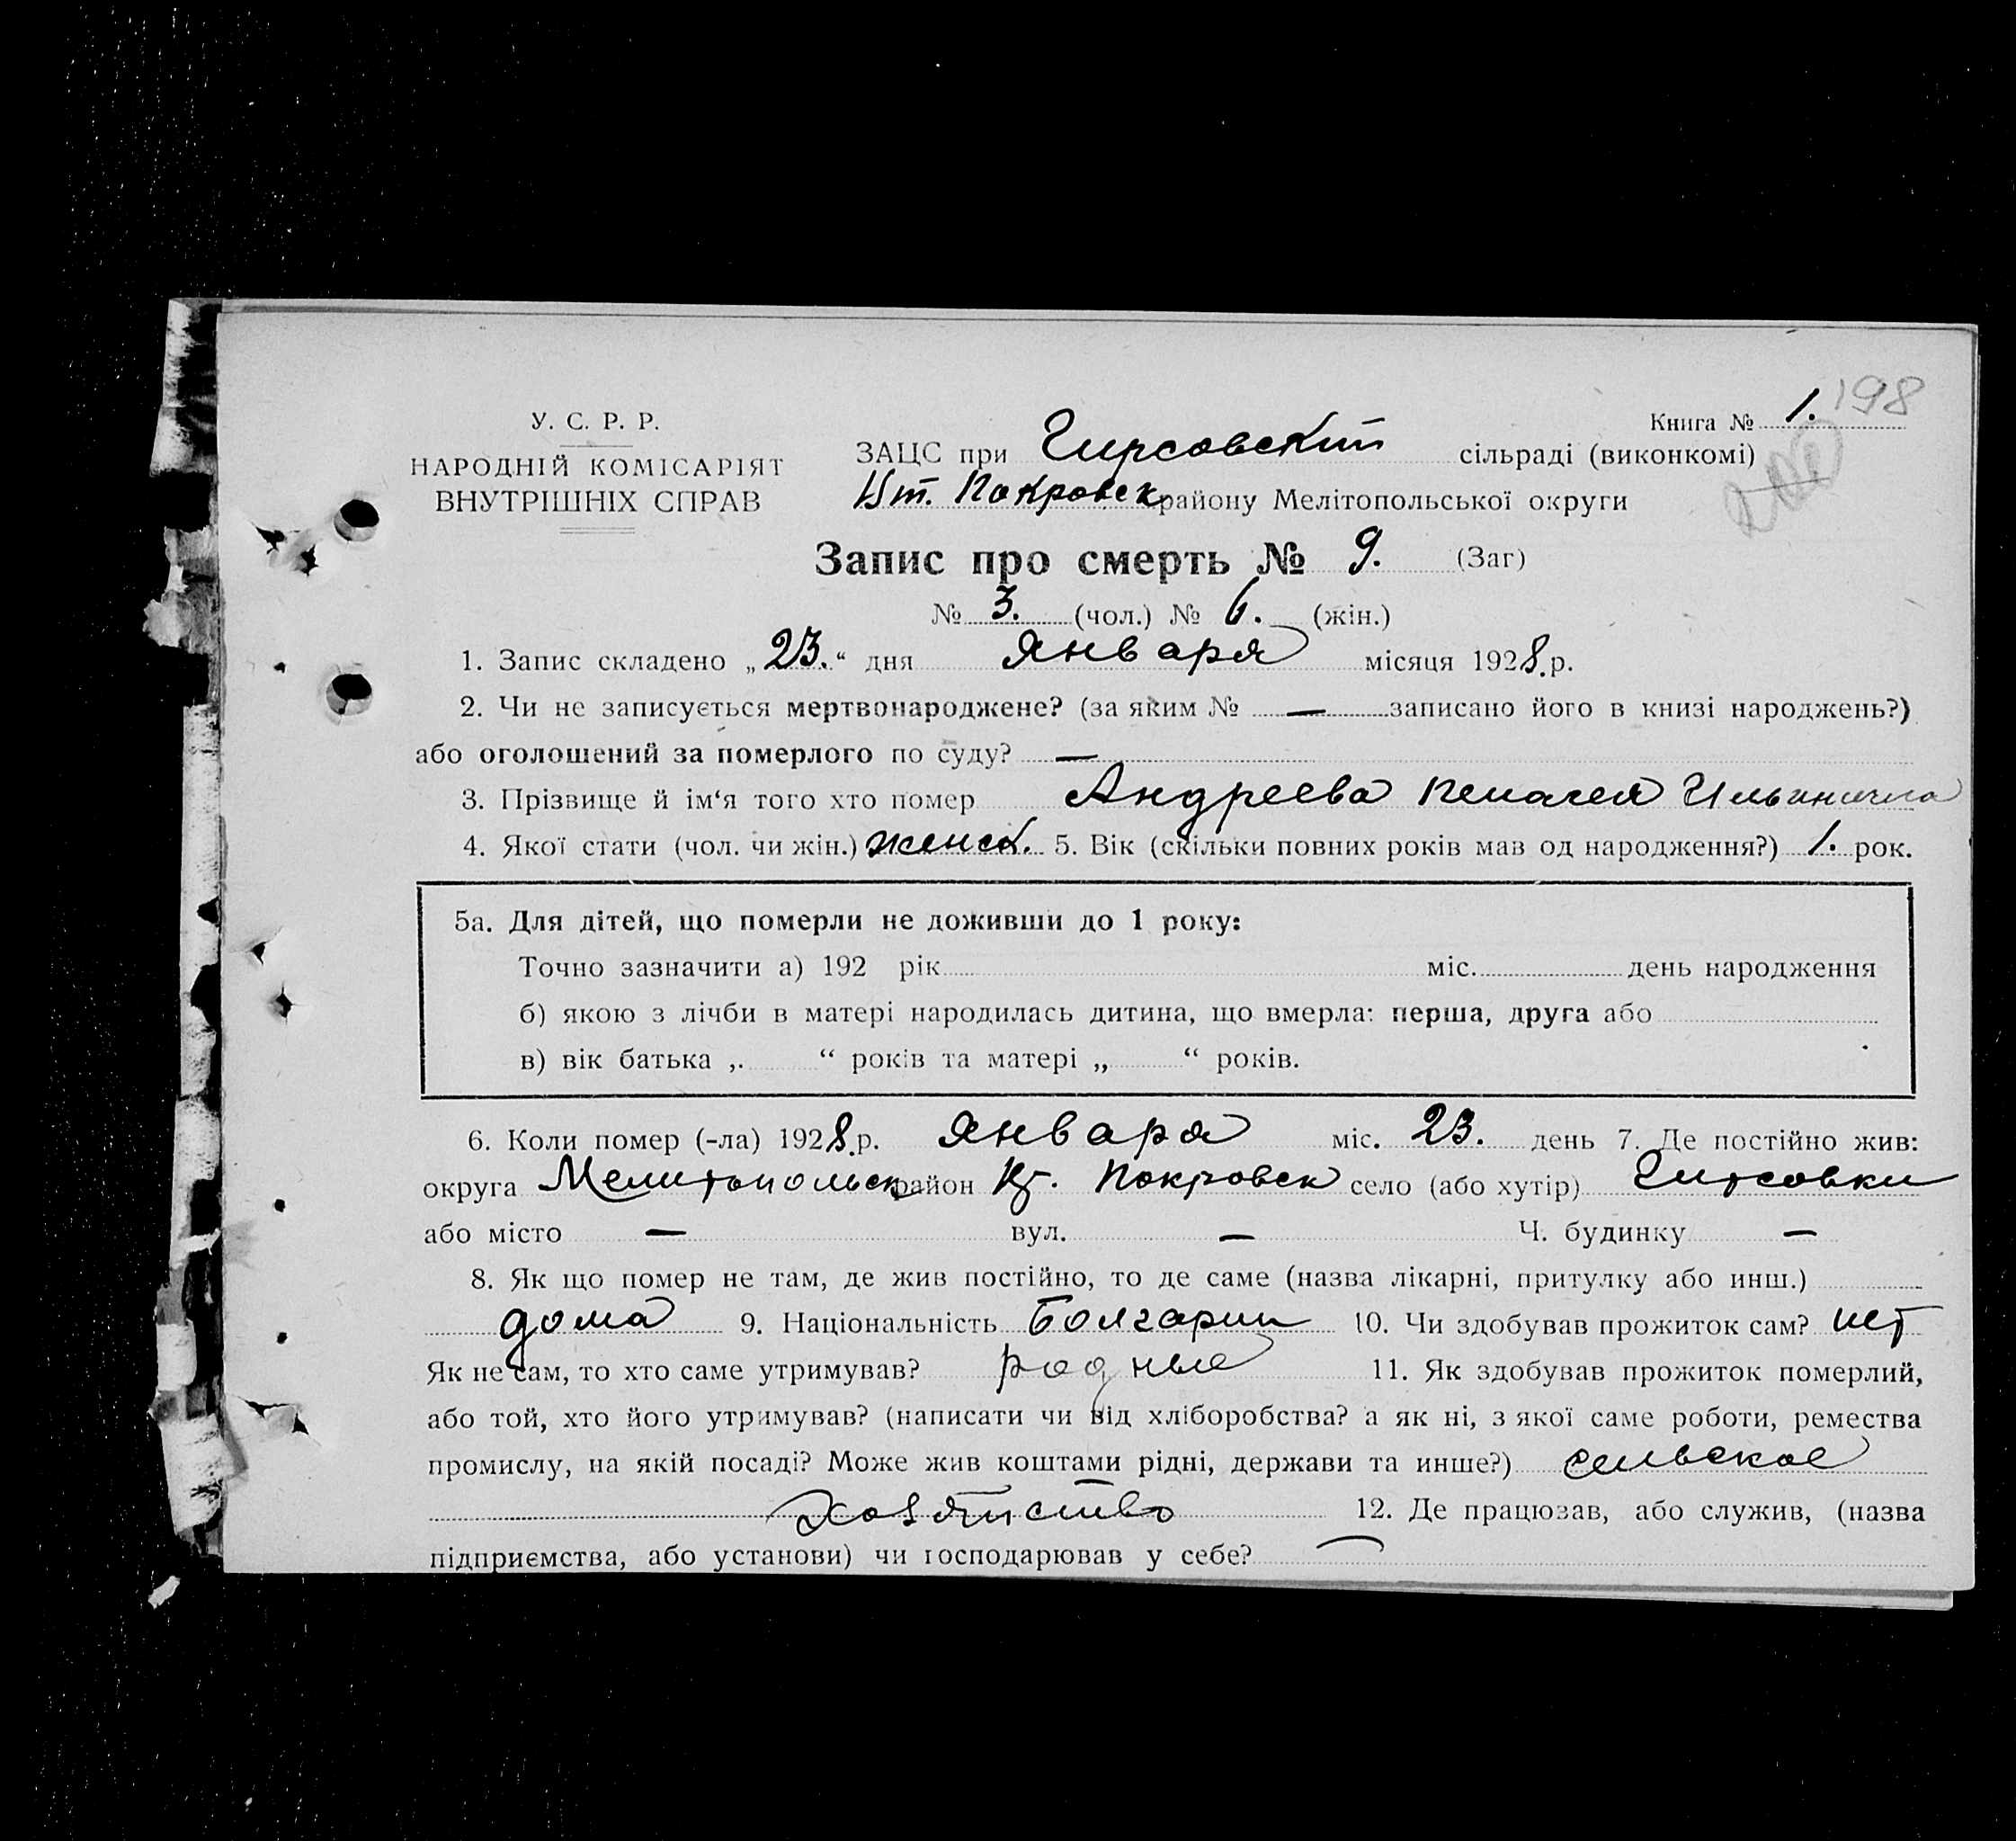 198
У. С. Р. Р.
Книга № 1.
НАРОДНІЙ КОМІСАРІЯТ
ВНУТРІШНІХ СПРАВ
ЗАЦС при Гирсовский сільраді (виконкомі)
Покровск району Мелітопольської округи
Запис про смерть № 9. (Заг)
№ 3. (чол.) № 6. (жін.)
1. Запис складено „23.“ дня Января місяця 1928.р.
2. Чи не записується мертвонароджене? (за яким № — записано його в книзі народжень?)
або оголошений за померлого по суду? —
3. Прізвище й ім‘я того хто помер Андреева Пелагея Ильинична
4. Якої стати (чол. чи жін.) женск. 5. Вік (скільки повних років мав од народження?) 1. рок.
5а. Для дітей, що померли не доживши до 1 року:
Точно зазначити а) 192 рік міс. день народження
б) якою з лічби в матері народилась дитина, що вмерла: перша, друга або
в) вік батька „ “ років та матері „ “ років.
6. Коли помер (-ла) 1928.р. Января міс. 23. день 7. Де постійно жив:
округа Мелитопольск район Покровск село (або хутір) Гирсовки
або місто — вул. — Ч. будинку —
8. Як що помер не там, де жив постійно, то де саме (назва лікарні, притулку або инш.)
дома 9. Національність Болгарин 10. Чи здобував прожиток сам? нет
Як не сам, то хто саме утримував? родные 11. Як здобував прожиток померлий,
або той, хто його утримував? (написати чи від хліборобства? а як ні, з якої саме роботи, ремества
промислу, на якій посаді? Може жив коштами рідні, держави та инше?) сельское
хозяйство 12. Де працював, або служив, (назва
підприємства, або установи) чи господарював у себе? —